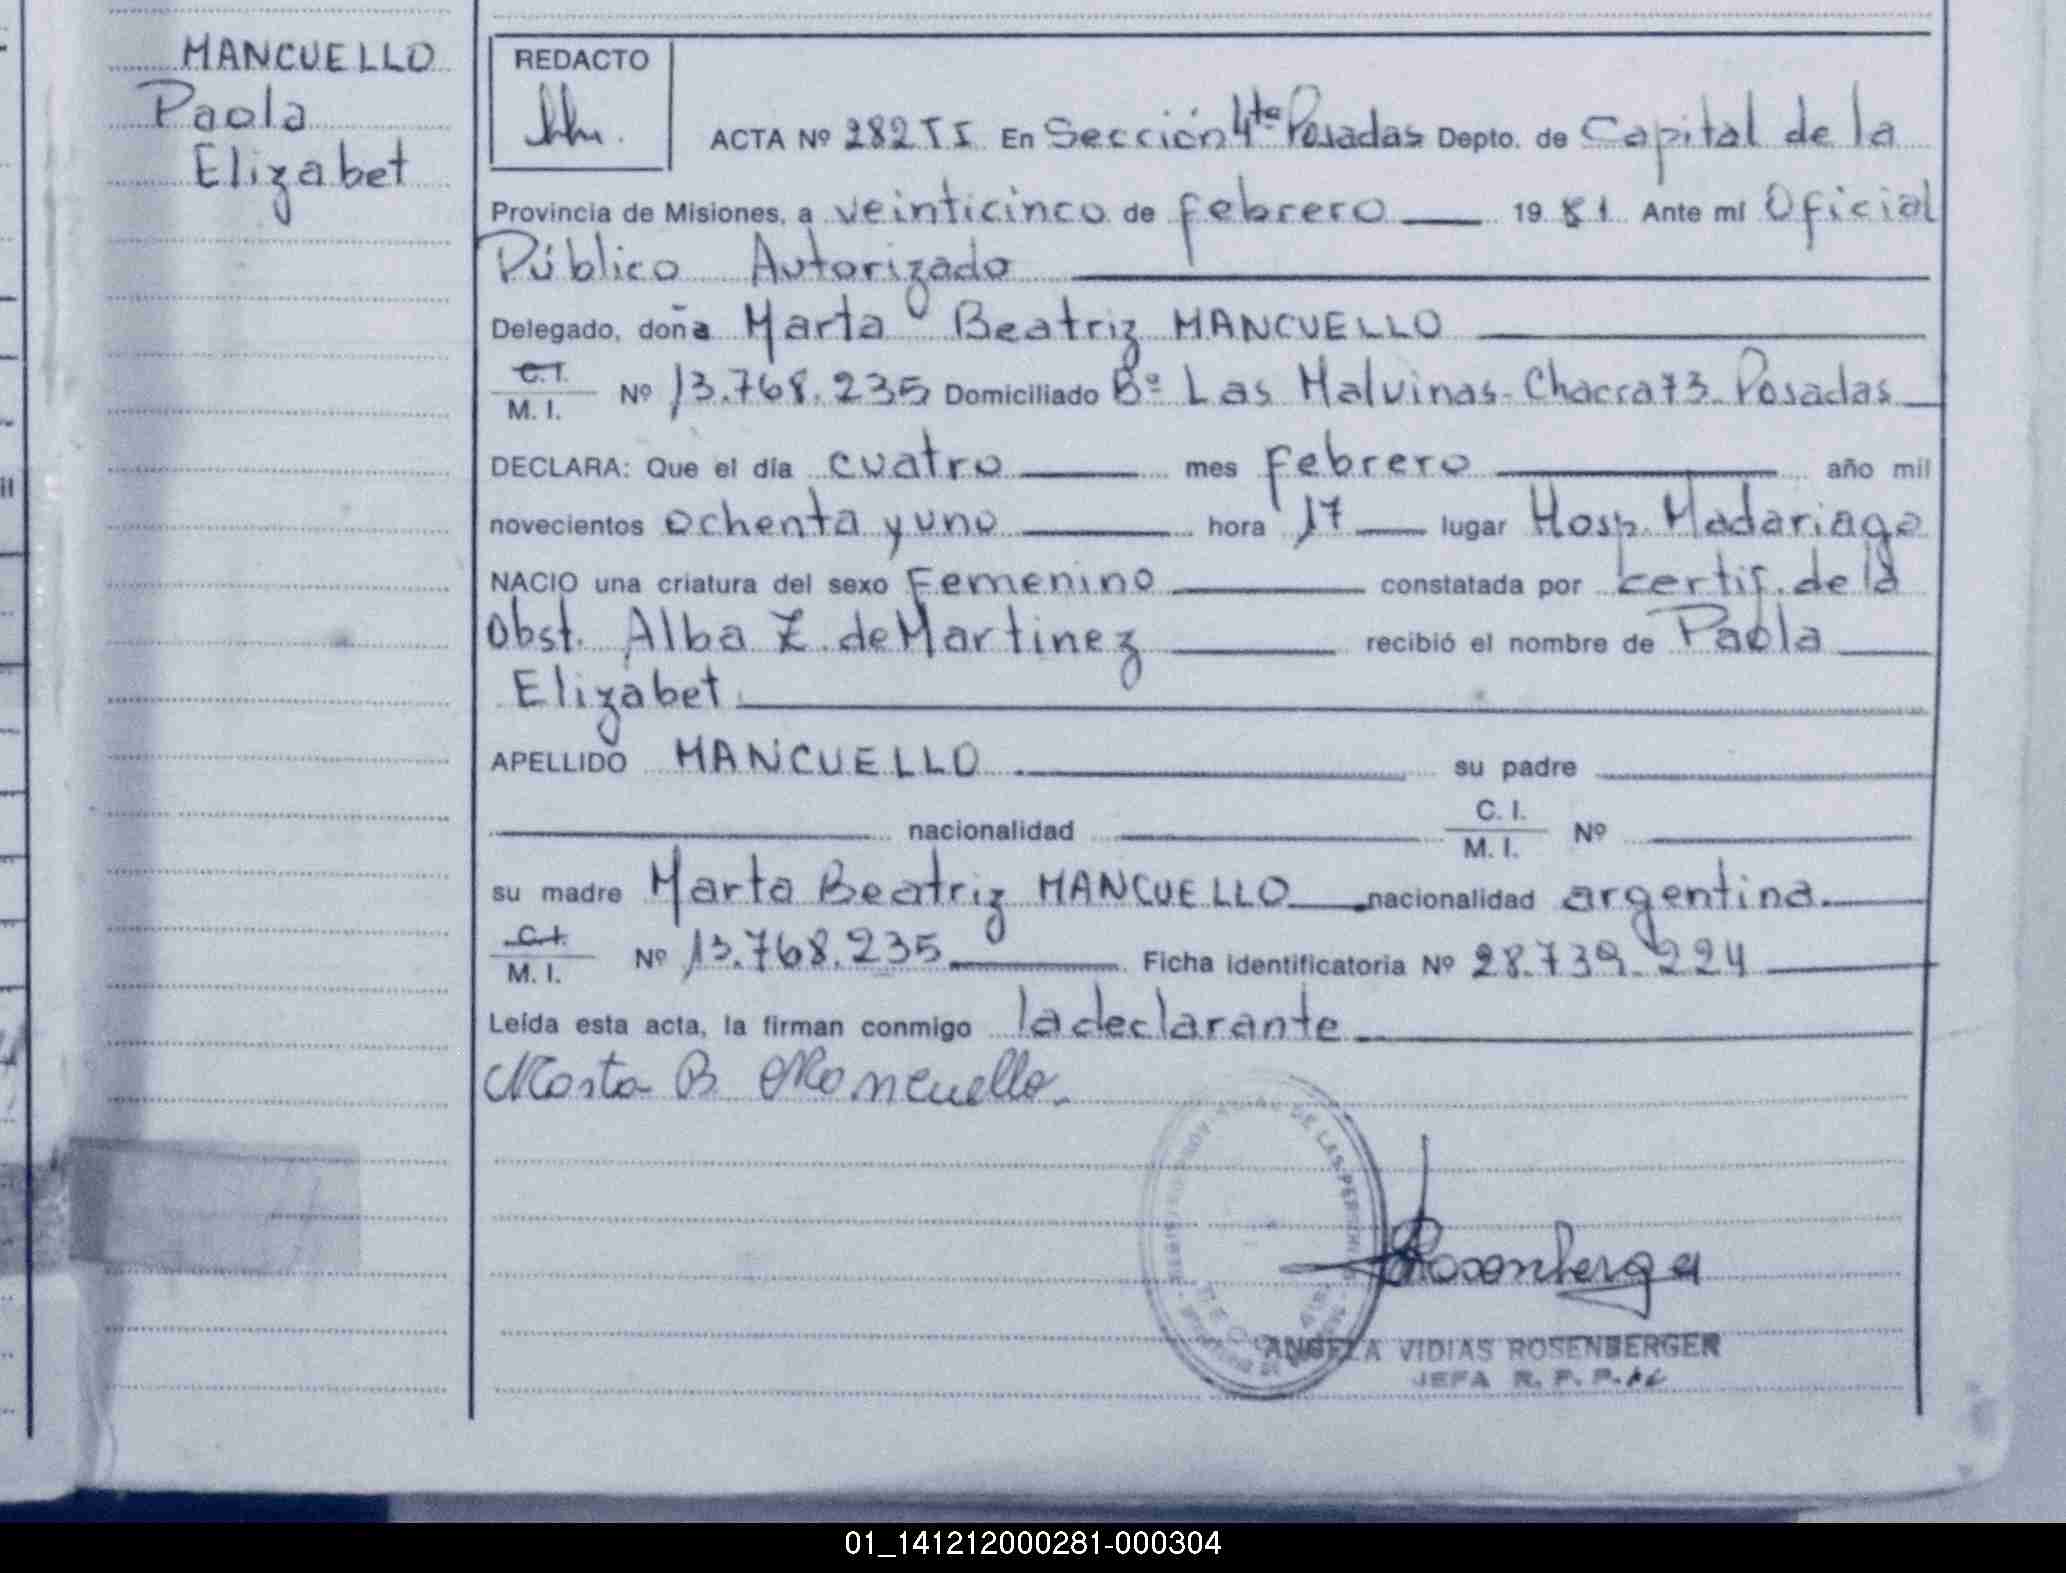 MANCUELLO
Paola
Elizabet
REDACTO
ACTA Nº 282 TI En Sección 4ta Posadas Depto. de Capital de la
Provincia de Misiones, a veinticinco de febrero 1981 Ante mí Oficial
Público Autorizado
Delegado, doña Marta Beatriz MANCUELLO
C.I.
M. I. Nº 13.768.235 Domiciliado Bº Las Malvinas-Chacra 73-Posadas
DECLARA: Que el día cuatro mes febrero año mil
novecientos ochenta y uno hora 17 lugar Hosp. Madariaga
NACIO una criatura del sexo Femenino constatada por certif. de la
Obst. Alba Z. de Martinez recibió el nombre de Paola
Elizabet
APELLIDO MANCUELLO su padre
nacionalidad C. I.
M. I. Nº
su madre Marta Beatriz MANCUELLO nacionalidad argentina
C.I.
M. I. Nº 13.768.235 Ficha identificatoria Nº 28.739.224
Leída esta acta, la firman conmigo la declarante
Marta B. Mancuello
DE LAS PERSONAS
Rosenberger
ANGELA VIDIAS ROSENBERGER
JEFA R. P. P.
01_141212000281-000304